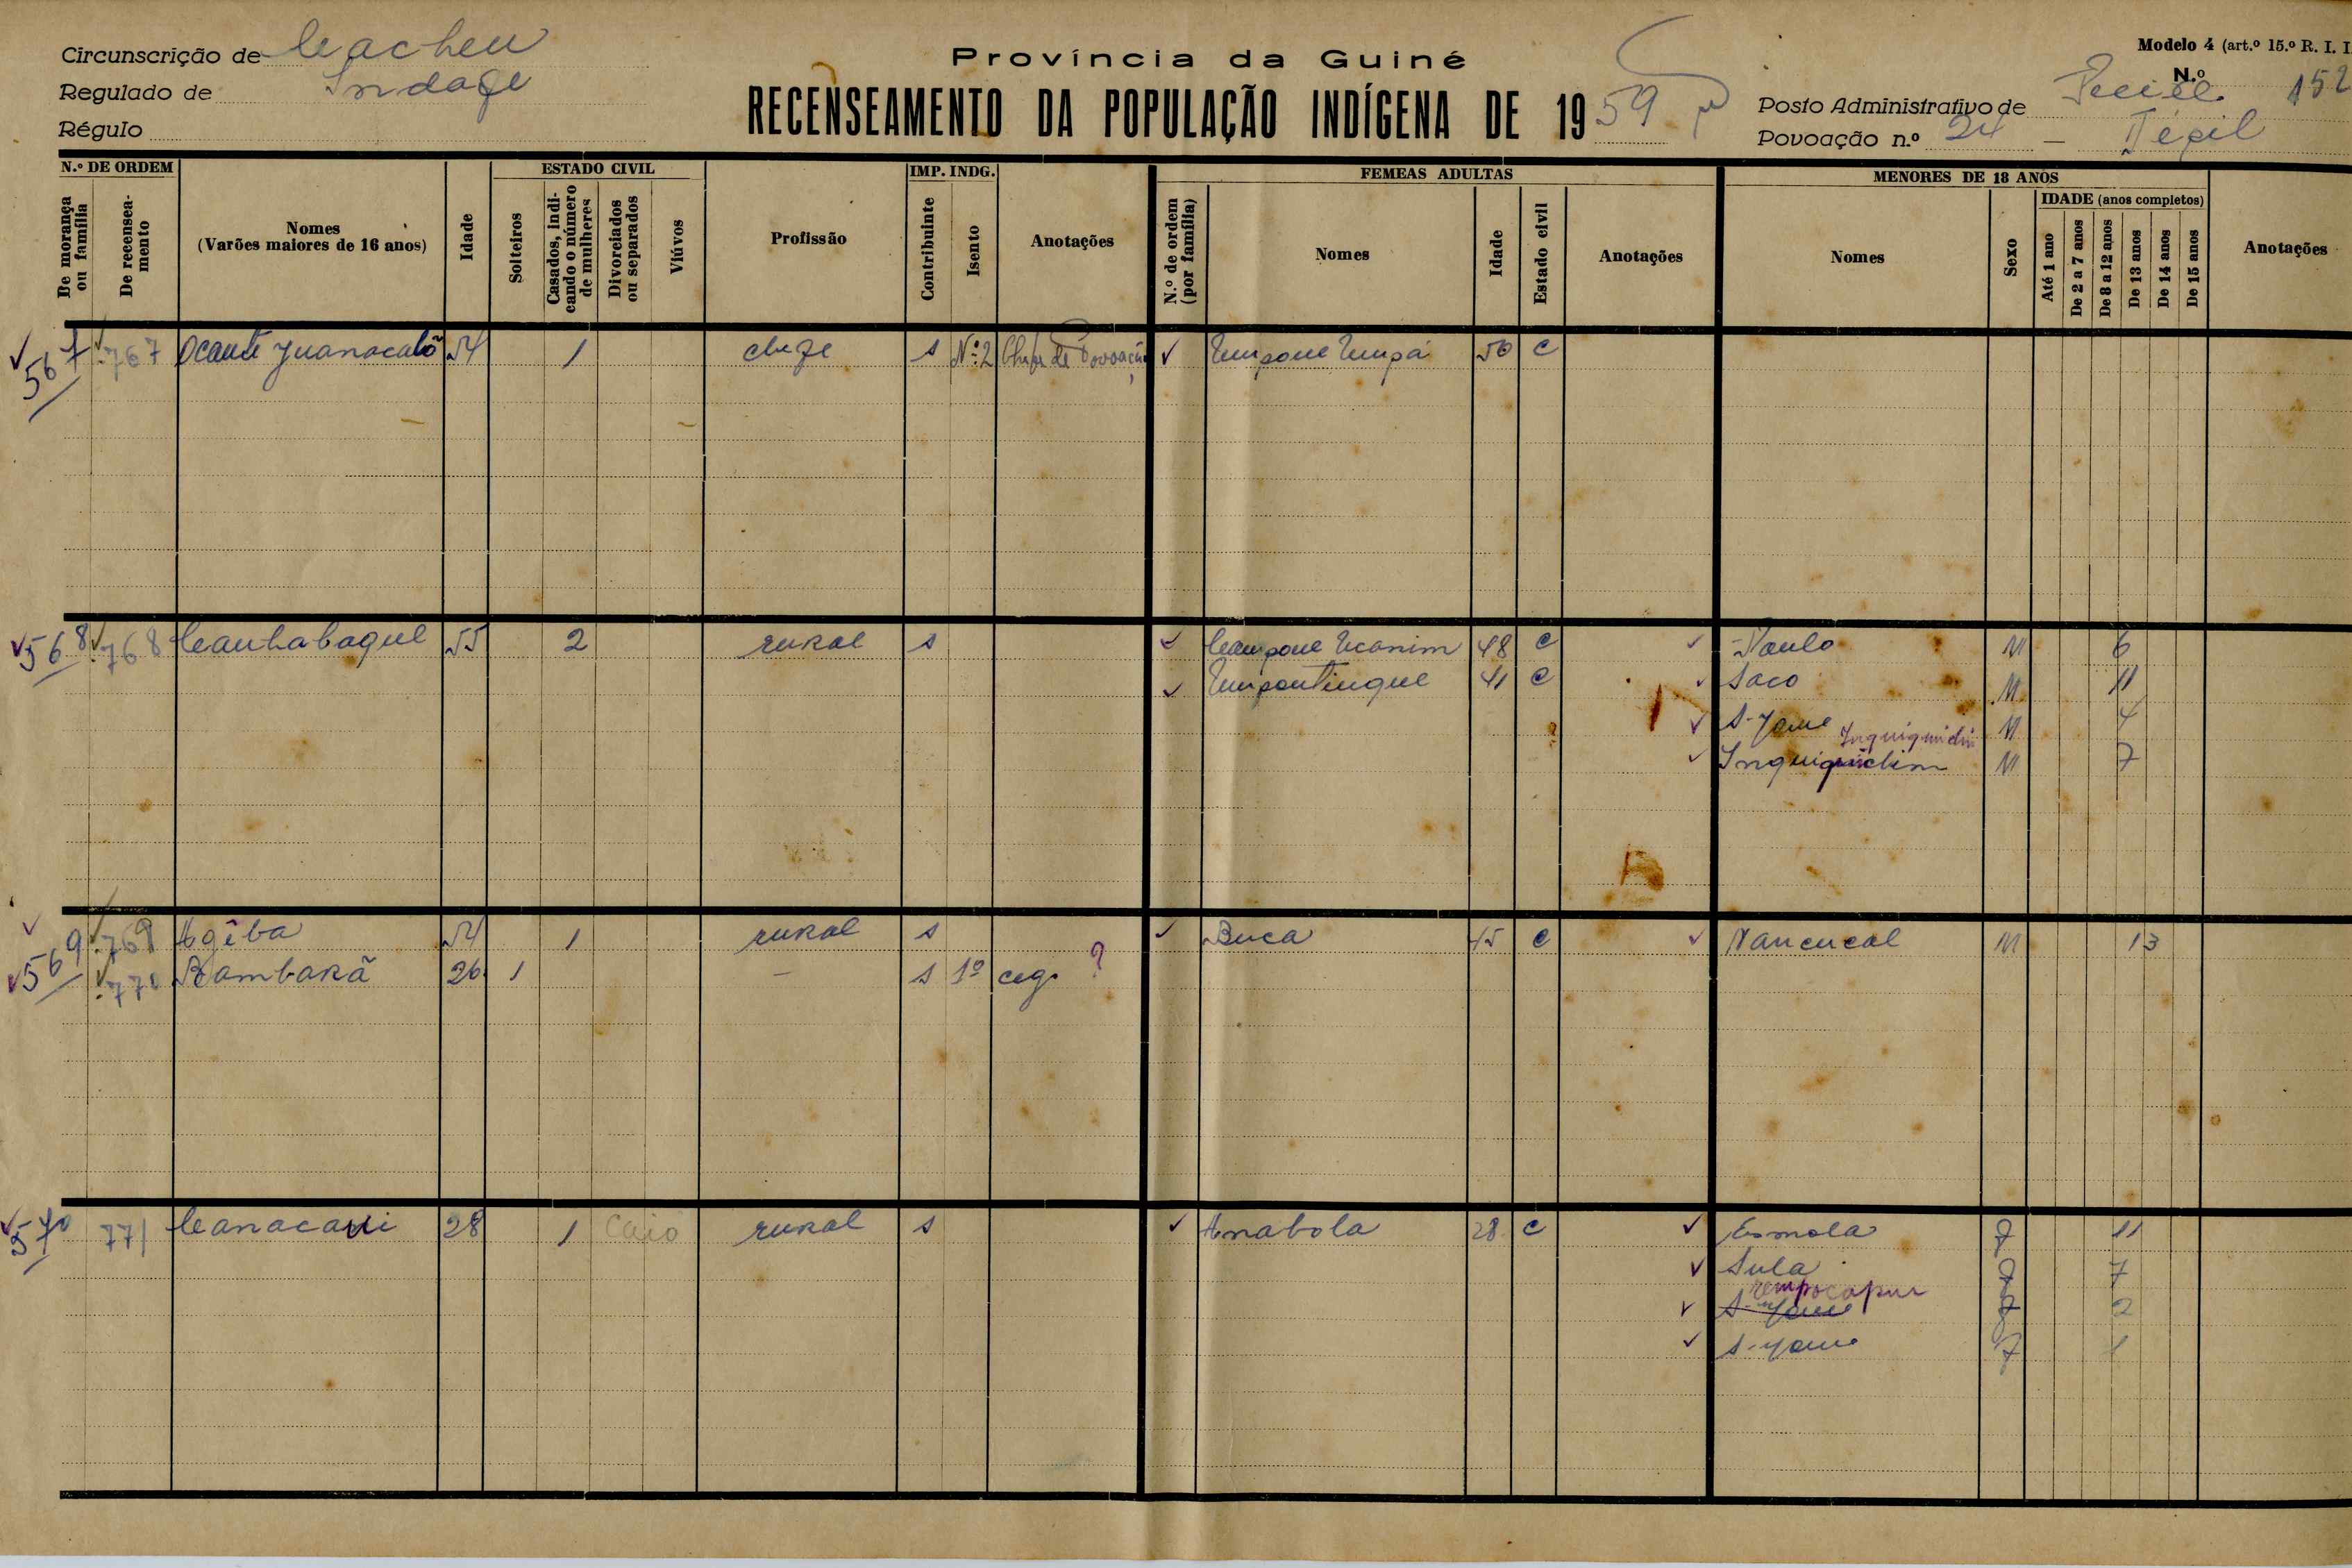 Circunscrição de Cacheu
Regulado de
Régulo
Província da Guiné
RECENSEAMENTO DA POPULAÇÃO INDÍGENA DE 1959
Modelo 4 (art.º 15.º R. I. I
N.º 152
Posto Administrativo de
Povoação n.º 24 –
N.º DE ORDEM
De morança ou família
De recenseamento
Nomes
(Varões maiores de 16 anos)
Idade
ESTADO CIVIL
Solteiros
Casados, indicando o número de mulheres
Divorciados ou separados
Viúvos
Profissão
IMP. INDG.
Contribuinte
Isento
Anotações
FEMEAS ADULTAS
N.º de ordem (por família)
Nomes
Idade
Estado civil
Anotações
MENORES DE 18 ANOS
Nomes
Sexo
IDADE (anos completos)
Até 1 ano
De 2 a 7 anos
De 8 a 12 anos
De 13 anos
De 14 anos
De 15 anos
Anotações
567 767 Ocante 54 1 chefe s N.º 2 Chefe de Povoação 50 C
568 768 55 2 rural s 48 C Paulo M 6
41 C Saco M 11
S-Yome M 4
Inquiquidim
Inquiquidim M 7
569 769 Agêba 54 1 rural s Buca 45 C Nancucal M 13
770 Bambarã 26 1 – s 1º cego ?
570 771 Canacaui 28 1 Caio rural s Anabola 28 C Esmola F 11
Sula F 7
rempocapur
S-Yome F 2
S-Yome F 1